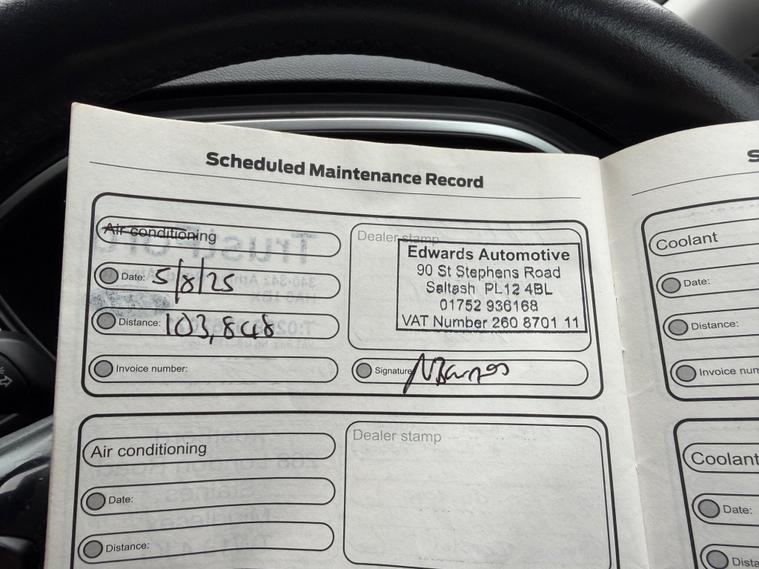 Scheduled Maintenance Record
Air conditioning
Date: 5/8/25
Distance: 103,848
Invoice number:
Dealer stamp
Edwards Automotive
90 St Stephens Road
Saltash PL12 4BL
01752 936168
VAT Number 260 8701 11
Signature
Air conditioning
Date:
Distance:
Dealer stamp
S
Coolant
Date:
Distance:
Invoice num
Coolant
Date:
Dista